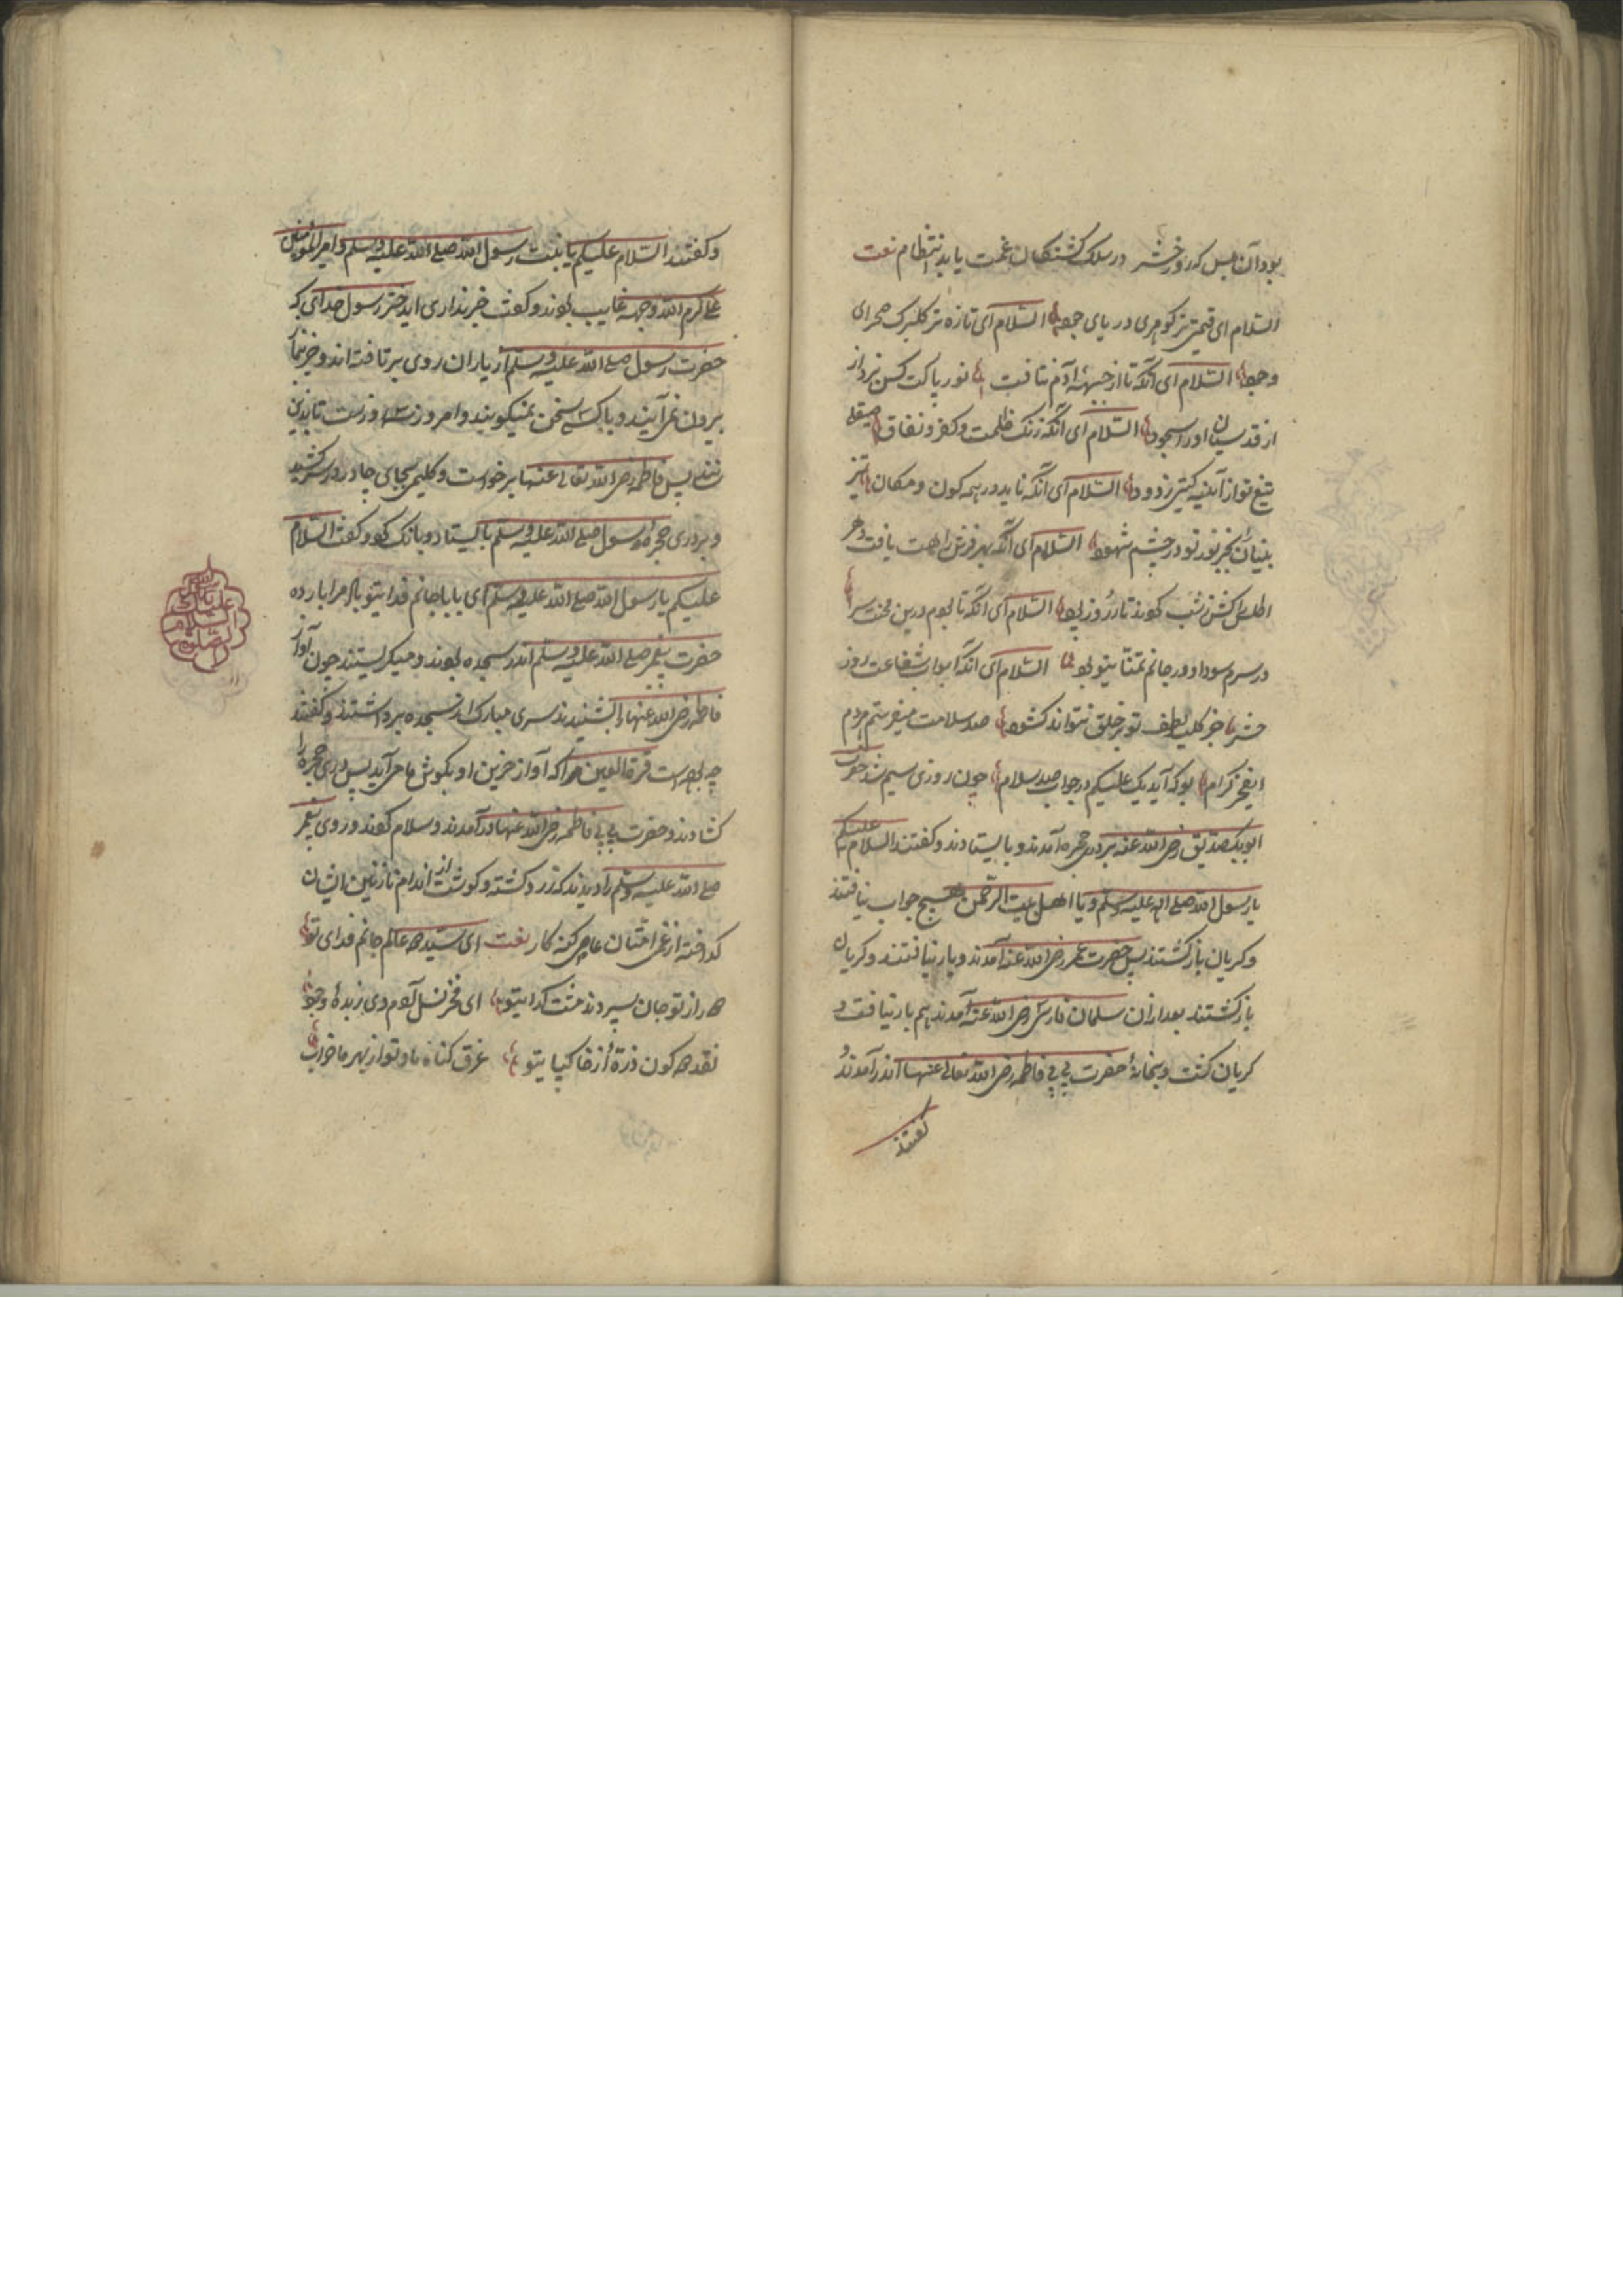 بود آن بس که روز حشر در سلک کشتکان غمت یابد انتظام نعت
السلام ای قیمتی تر کوهری دریای جود السلام ای تازه تر کلبرک صحرای
وجود السلام ای آنکه تا از جبههٔ آدم نتافت نور پاکت کس نبرد از
قدسیان او را سجود السلام ای آنکه زنک ظلمت و کفر و نفاق صیقل
تیغ تو از آیینه کیتی زدود السلام ای آنکه ناید در همه کون و مکان تیز
بنیان بجز نور تو در چشم شهود السلام ای آنکه بهر فرش راهت بافت دهر
اطلس را کش ز شب کردند تار و روز پود السلام ای آنکه تا بودم درین محنت سرا
در سرم سودا و در جانم تمنا یتو بود السلام ای آنکه ابواب شفاعت روز
حشر جز کلید لطف تو بر خلق نتواند کشود صد سلامت میفرستم هر دم
ای فخر کرام بو که آید یک علیکم در جواب صد سلام چون روزی سیم شد حضرت
ابوبکر صدیق رضی الله عنه بر در حجره آمدند و بایستادند و کفتند السلام علیکم
یا رسول الله صلی الله علیه وسلم و یا اهل بیت الرحمن هیچ جواب نیافتند
و کریان بازکشتند پس حضرت عمر رضی الله عنه آمدند و بار نیافتند و کریان
بازکشتند بعد ازان سلمان فارسی رضی الله عنه آمدند هم بار نیافت و
کریان کشت و بخانهٔ حضرت بی بی فاطمه رضی الله تعالی عنها اندر آمدند و
کفتند
و کفتند السلام علیکم یا بنت رسول الله صلی الله علیه وسلم و امیر المؤمنین
علی کرم الله وجهه غایب بودند و کفت خبر نداری ای دختر رسول خدای که
حضرت رسول صلی الله علیه وسلم از یاران روی بر تافته اند و جز بنماز
بیرون نمی آیند و با کسی سخن نمیکویند و امروز سه روزست تا بدین
پس فاطمه رضی الله تعالی عنها برخواست و کلیمی بجای چادر در سر کشید
و بر دری حجرهٔ رسول صلی الله علیه وسلم بایستاد و بانک کرد و کفت السلام
علیکم یا رسول الله صلی الله علیه وسلم ای بابا جانم فدا یتو باد مرا بار ده
حضرت پیغمبر صلی الله علیه وسلم اندر سجده بودند و میکریستند چون آواز
فاطمه رضی الله عنها را بشنیدند سری مبارک از سجده برداشتند و کفتند
چه بوده است قرة العین مرا که آواز حزین او بکوش ما می آید پس دری حجره را
کشادند و حضرت بی بی فاطمه رضی الله عنها درآمدند و سلام کردند و روی پیغمبر
صلی الله علیه وسلم را دیدند که زرد کشته و کوشت از اندام نازنین ایشان
کداخته از غم امتان عاصی کنه کار نعت ای سید همه عالم جانم فدای تو
همه راز تو جان سپردند منت کدا یتو ای فخر نسل آدم وی زبدهٔ وجود
نقد همه کون ذرهٔ از خاکپا یتو غرق کناه ما و تو از بهر ما خراب
الصلوة السلام علیک یا رسول الله